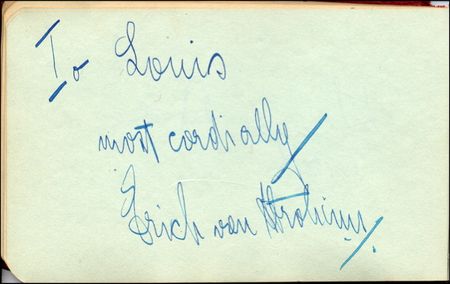 To Louis
most cordially
Erich von Stroheim